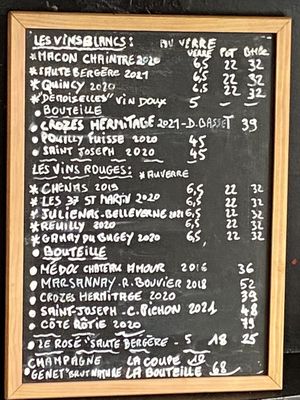 LES VINS BLANCS: AU VERRE
VERRE POT BTLLE
*MACON CHAINTRÉ 2020 6,5 22 32
*SAUTE BERGÈRE 2021 6,5 22 32
*QUINCY 2020 6,5 22 32
*"DEMOISELLES" VIN DOUX 5 - -
BOUTEILLE
•CROZES HERMITAGE 2021-D.BASSET 39
•POUILLY FUISSE 2020 45
•SAINT JOSEPH 2020 45
LES VINS ROUGES: *AU VERRE
*CHENAS 2019 6,5 22 32
*LES 37 ST MARTIN 2020 6,5 22 32
*JULIENAS-BELLEVERNE 2021 6,5 22 32
*REUILLY 2020 6,5 22 32
*GAMAY DU BUGEY 2020 6,5 22 32
•BOUTEILLE
•MÉDOC CHÂTEAU 2016 36
•MARSANNAY-R.BOUVIER 2018 52
•CROZES HERMITAGE 2020 39
•SAINT-JOSEPH-C.PICHON 2021 48
•CÔTE RÔTIE 2020 79
•LE ROSÉ "SAUTE BERGÈRE" - 5 18 25
CHAMPAGNE LA COUPE 10
•GENET "BRUT NATURE LA BOUTEILLE 68